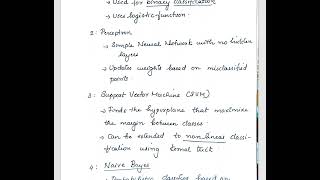 → Used for binary classification
→ Uses logistic function
2: Perceptron
→ Simple Neural Network with no hidden
layers
→ Updates weights based on misclassified
points.
3: Support Vector Machine (SVM)
→ Finds the hyperplane that maximize
the margin between classes
→ Can be extended to non linear classi-
fication using kernel trick
4: Naive Bayes
→ Probabilistic classifier based on